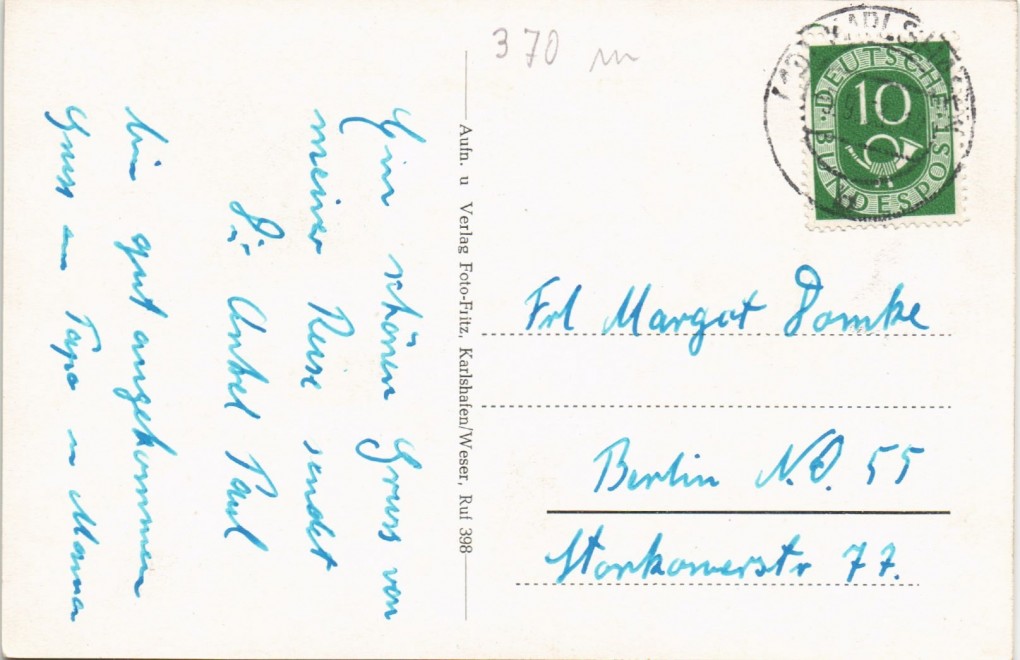 Ein schönen Gruss von
meiner Reise sendet
Dir Onkel Paul
bin gut angekommen
Gruss an Papa u Mama
Aufn. u Verlag Foto-Fritz, Karlshafen/Weser, Ruf 398
370 m
DEUTSCHE
10
BUNDESPOST
Frl Margot Domke
Berlin N.O. 55
Storkowerstr 77.